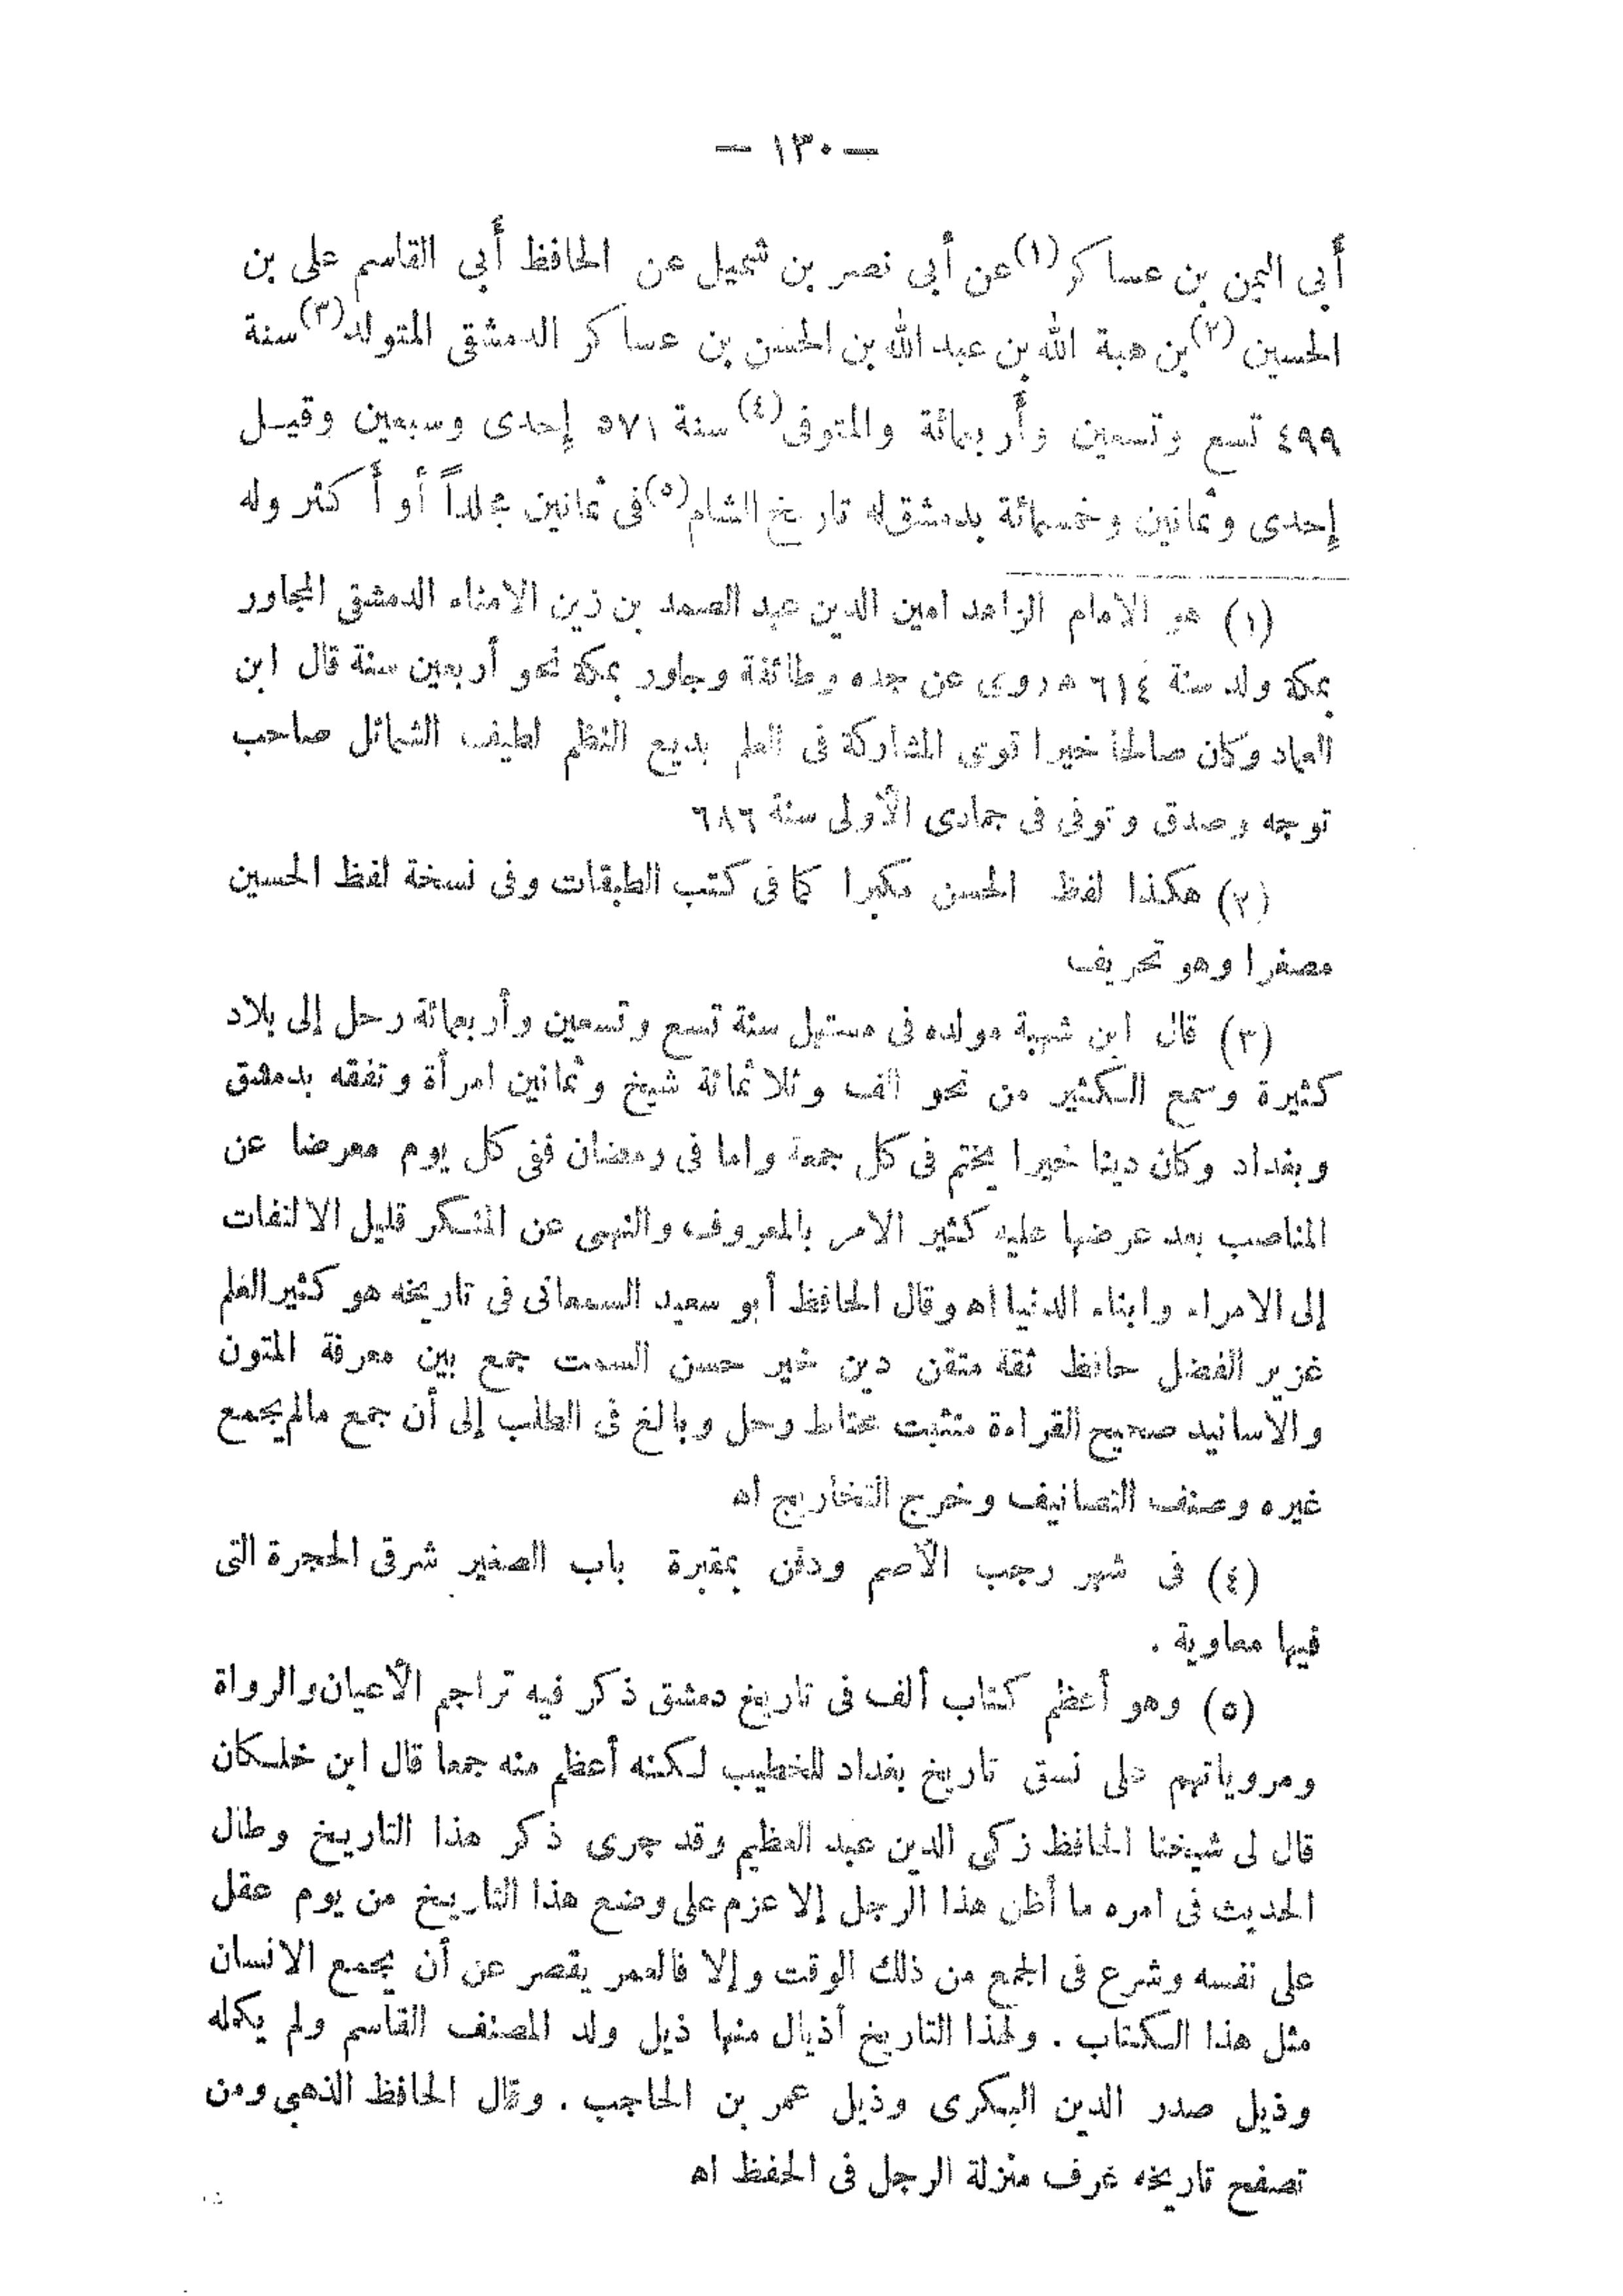 — ١٣٠ —
أبي اليمن بن عساكر (١) عن أبي نصر بن شميل عن الحافظ أبي القاسم على بن
الحسين (٢) بن هبة الله بن عبد الله بن الحسن بن عساكر الدمشقى المتولد (٣) سنة
٤٩٩ تسع وتسعين وأربعمائة والمتوفى (٤) سنة ٥٧١ إحدى وسبعين وقيل
إحدى وثمانين وخمسمائة بدمشق له تاريخ الشام (٥) فى ثمانين مجلداً أو أكثر وله
(١) هو الامام الزاهد امين الدين عبد الصمد بن زين الامناء الدمشقى المجاور
بمكة ولد سنة ٦١٤ ه روى عن جده وطائفة وجاور بمكة نحو أربعين سنة قال ابن
العماد وكان صالحا خيرا قوى المشاركة فى العلم بديع النظم لطيف الشمائل صاحب
توجه وصدق وتوفى فى جمادى الأولى سنة ٦٨٦
(٢) هكذا لفظ الحسن مكبرا كما فى كتب الطبقات وفى نسخة لفظ الحسين
مصغرا وهو تحريف
(٣) قال ابن شهبة مولده فى مستهل سنة تسع وتسعين وأربعمائة رحل إلى بلاد
كثيرة وسمع الكثير من نحو الف وثلاثمائة شيخ وثمانين امرأة وتفقه بدمشق
وبغداد وكان دينا خيرا يختم فى كل جمعة واما فى رمضان ففى كل يوم معرضا عن
المناصب بعد عرضها عليه كثير الامر بالمعروف والنهى عن المنكر قليل الالتفات
إلى الامراء وابناء الدنيا اه وقال الحافظ أبو سعيد السمعانى فى تاريخه هو كثير العلم
غزير الفضل حافظ ثقة متقن دين خير حسن السمت جمع بين معرفة المتون
والأسانيد صحيح القراءة متثبت محتاط رحل وبالغ فى الطلب إلى أن جمع مالم يجمع
غيره وصنف التصانيف وخرج التخاريج اه
(٤) فى شهر رجب الأصم ودفن بمقبرة باب الصغير شرقى الحجرة التى
فيها معاوية .
(٥) وهو أعظم كتاب ألف فى تاريخ دمشق ذكر فيه تراجم الأعيان والرواة
ومروياتهم على نسق تاريخ بغداد للخطيب لكنه أعظم منه جمعا قال ابن خلكان
قال لى شيخنا الحافظ زكى الدين عبد العظيم وقد جرى ذكر هذا التاريخ وطال
الحديث فى امره ما أظن هذا الرجل إلا عزم على وضع هذا التاريخ من يوم عقل
على نفسه وشرع فى الجمع من ذلك الوقت وإلا فالعمر يقصر عن أن يجمع الانسان
مثل هذا الكتاب . ولهذا التاريخ أذيال منها ذيل ولد المصنف القاسم ولم يكمله
وذيل صدر الدين البكرى وذيل عمر بن الحاجب . وقال الحافظ الذهبى ومن
تصفح تاريخه عرف منزلة الرجل فى الحفظ اه